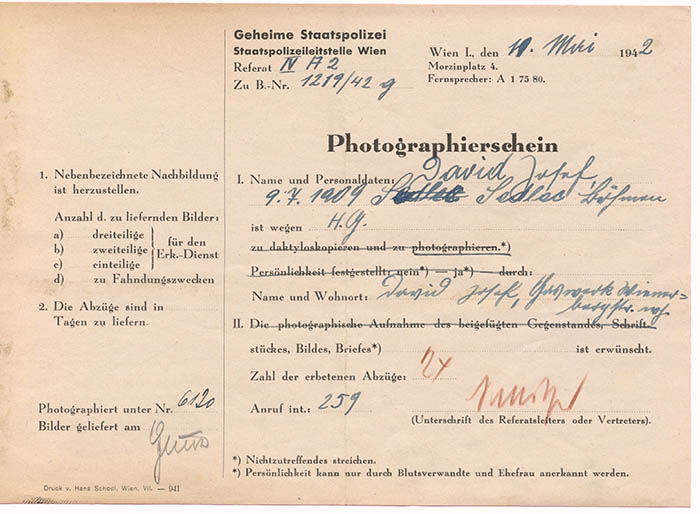 Geheime Staatspolizei
Staatspolizeileitstelle Wien
Referat IV A 2
Zu B.-Nr. 1219/42 g
Wien I., den 11. Mai 1942
Morzinplatz 4.
Fernsprecher: A 1 75 80.
Photographierschein
1. Nebenbezeichnete Nachbildung
ist herzustellen.
Anzahl d. zu liefernden Bilder:
a) dreiteilige
b) zweiteilige
c) einteilige
für den
Erk.-Dienst
d) zu Fahndungszwecken
2. Die Abzüge sind in
Tagen zu liefern.
Photographiert unter Nr. 6120
Bilder geliefert am
Druck v. Hans Schödl, Wien, VII. — 941
I. Name und Personaldaten: David Josef,
9.7.1909 Sedlec Sedlec Böhmen
ist wegen H.G.
zu daktyloskopieren und zu photographieren.*)
Persönlichkeit festgestellt: nein*) — ja*) — durch:
Name und Wohnort: David Josef, Gaswerk Wiener-
bergstr. whf.
II. Die photographische Aufnahme des beigefügten Gegenstandes, Schrift-
stückes, Bildes, Briefes*) ist erwünscht.
Zahl der erbetenen Abzüge: 2x
Anruf int.: 259
(Unterschrift des Referatsleiters oder Vertreters).
*) Nichtzutreffendes streichen.
*) Persönlichkeit kann nur durch Blutsverwandte und Ehefrau anerkannt werden.